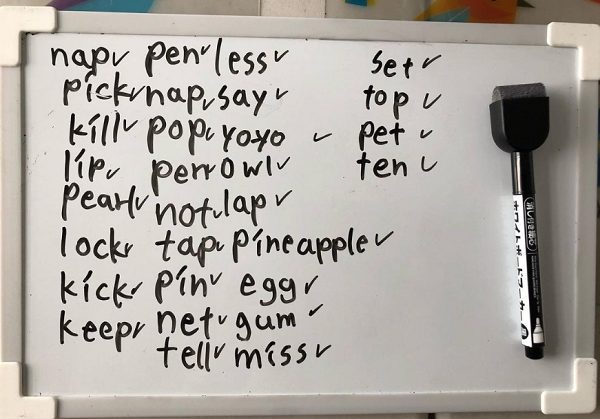 nap pen less set
pick nap say top
kill pop yoyo pet
lip pen owl ten
pearl not lap
lock tap pineapple
kick pin egg
keep net gum
tell miss
ホワイトボードマーカー